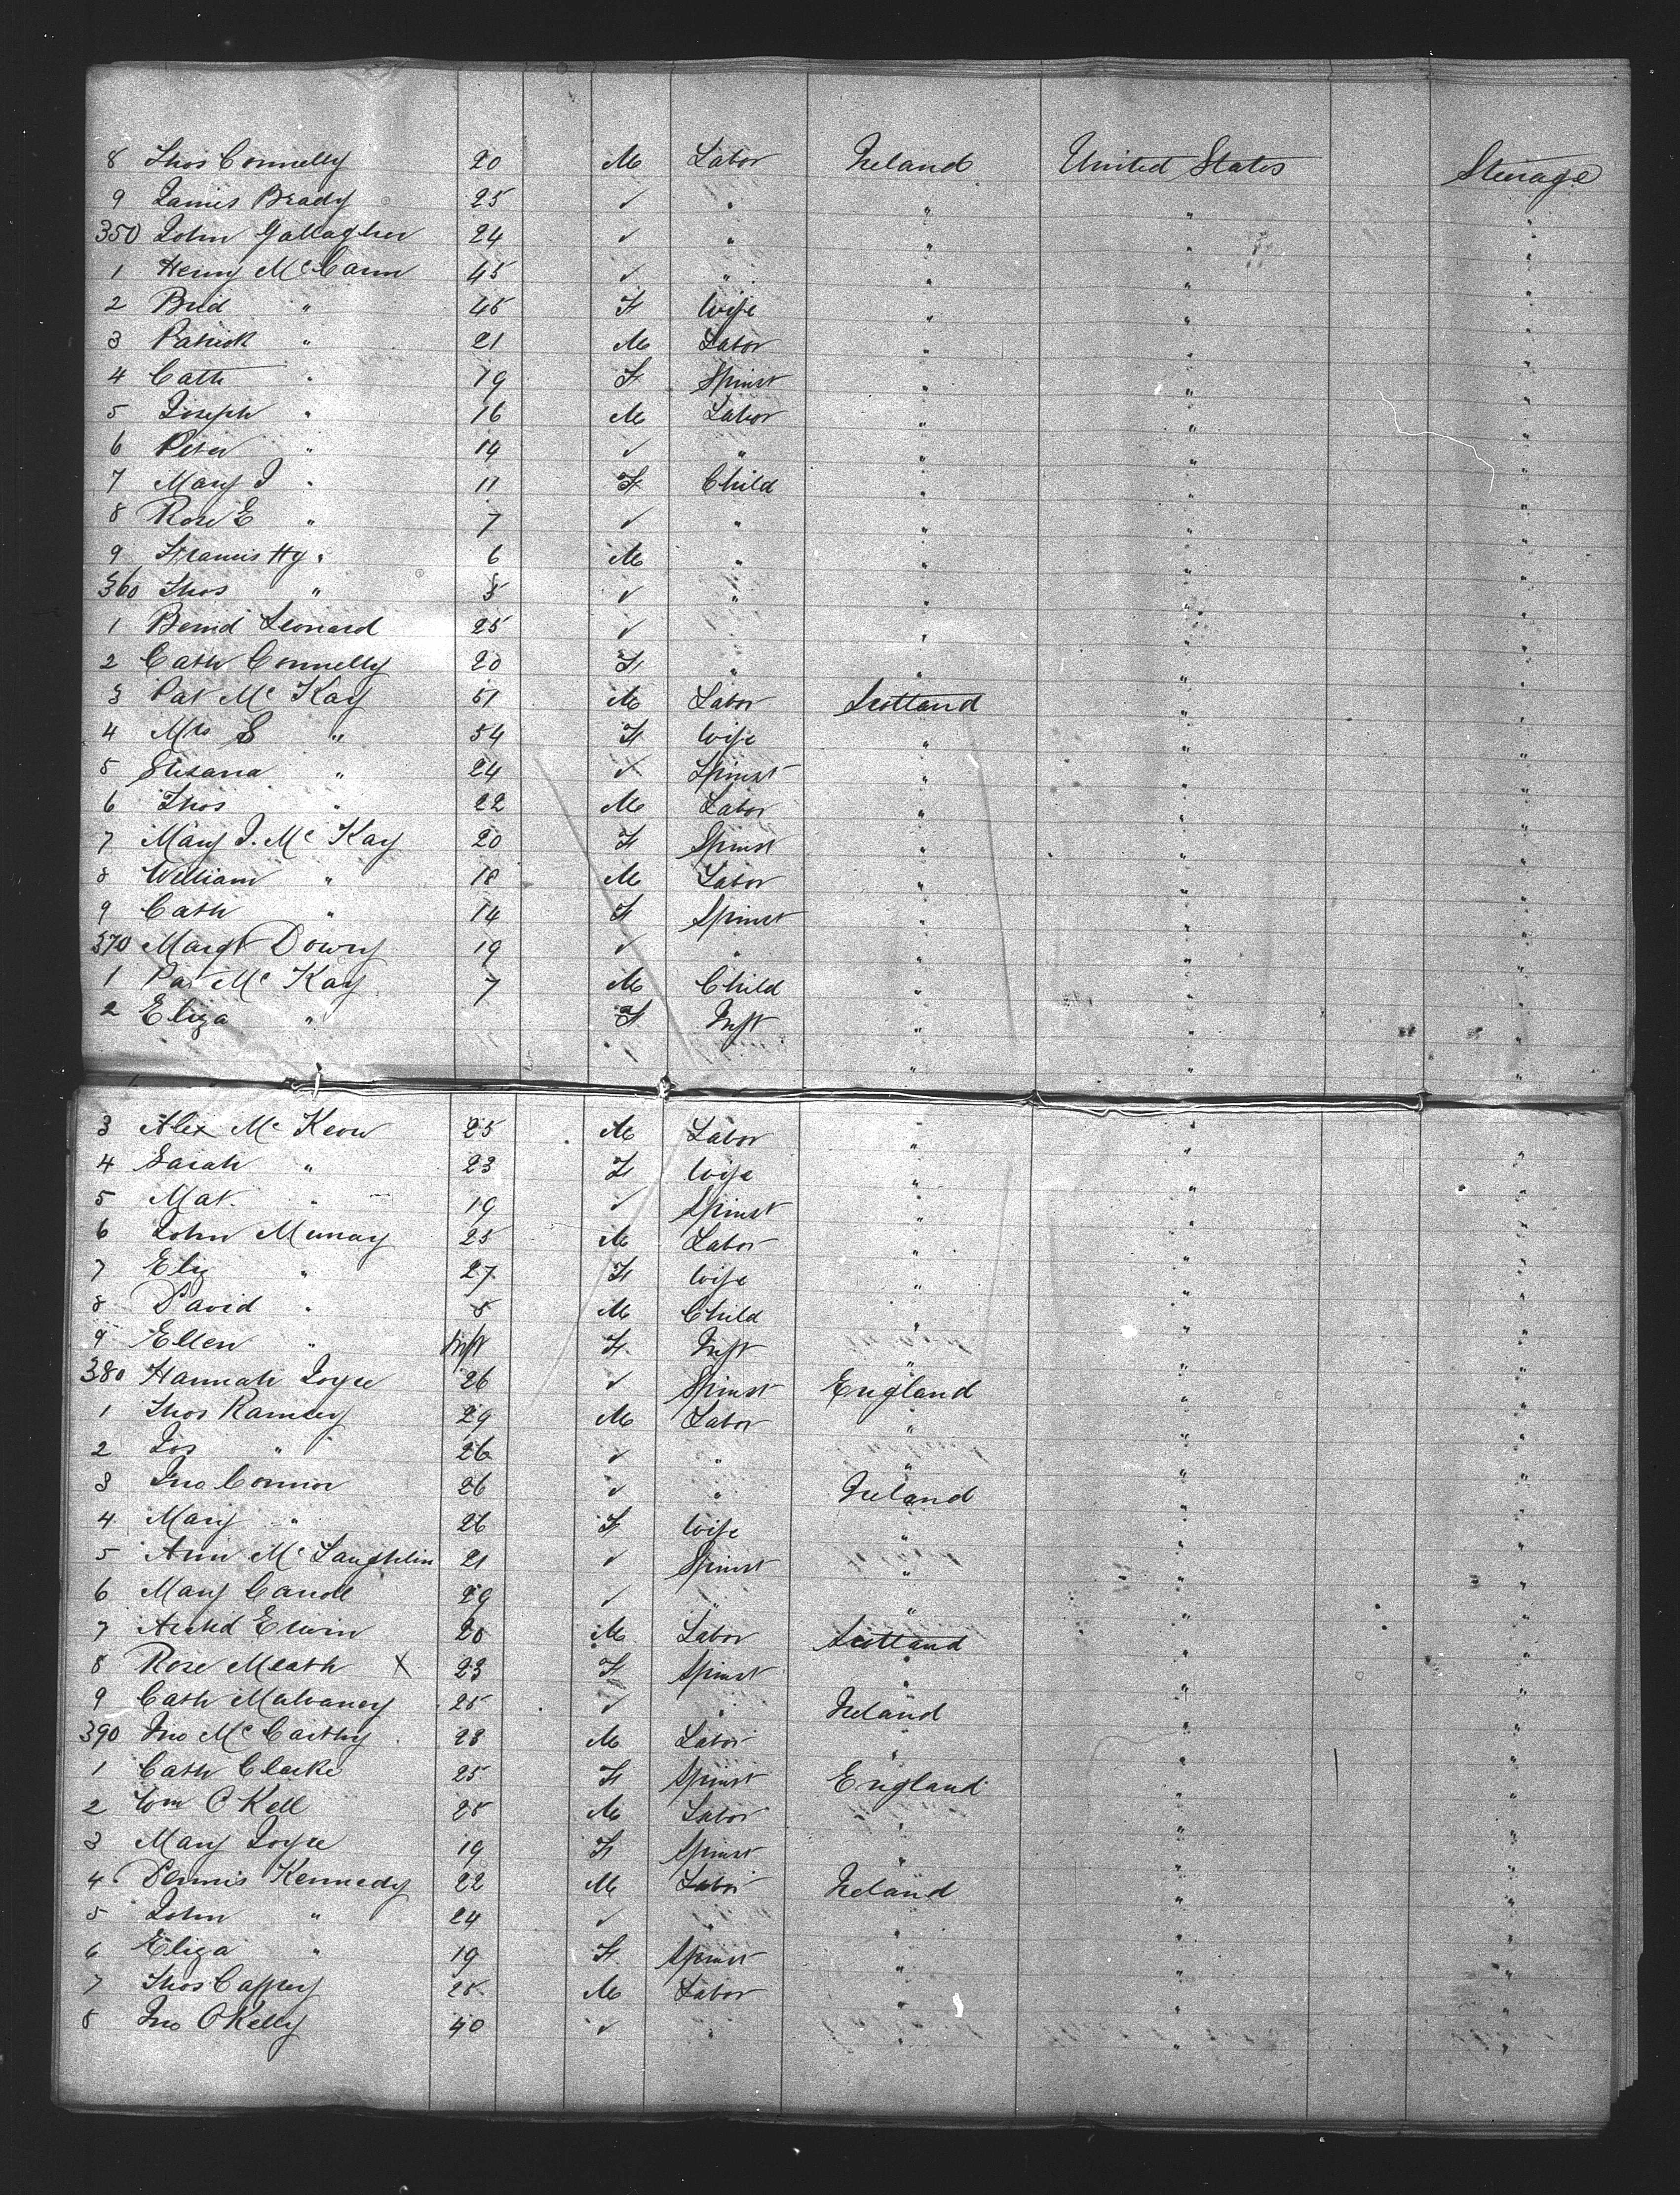 8 Thos Connelly 20 M Labor Ireland United States Steerage
9 James Brady 25 ✓ " " " "
350 John Gallagher 24 ✓ " " " "
1 Henry McCann 45 ✓ " " " "
2 Brid " 45 F Wife " " "
3 Patrick " 21 M Labor " " "
4 Cath " 19 F Spinst " " "
5 Joseph " 16 M Labor " " "
6 Peter " 14 ✓ " " " "
7 Mary J " 11 F Child " " "
8 Rose E " 7 ✓ " " " "
9 Francis Hy " 6 M " " " "
360 Thos " ✓ " " " "
1 Bernd Leonard 25 ✓ " " "
2 Cath Connelly 20 F " " " "
3 Pat McKay 51 M Labor Scotland " "
4 Mrs S " 54 F Wife " " "
5 Susana " 24 ✓ Spinst " " "
6 Thos " 22 M Labor " " "
7 Mary J. McKay 20 F Spinst " " "
8 William " 18 M Labor " " "
9 Cath " 14 F Spinst " " "
370 Margt Dowry 19 ✓ " " " "
1 Pat McKay 7 M Child " " "
2 Eliza " F Inft " " "
3 Alex McKeow 25 M Labor " " "
4 Sarah " 23 F Wife " " "
5 Mat. " 19 ✓ Spinst " " "
6 John Murray 25 M Labor " " "
7 Eliz " 27 F Wife " " "
8 David " M Child " " "
9 Ellen " Inft F Inft " " "
380 Hannah Joyce 26 ✓ Spinst England " "
1 Thos Ramsey 29 M Labor " " "
2 Jos " 26 ✓ " " " "
3 Jno Connor 26 ✓ " Ireland " "
4 Mary " 26 F Wife " " "
5 Ann McLaughlin 21 ✓ Spinst " " "
6 Mary Caroll 29 ✓ " " " "
7 Archd Erwin 20 M Labor Scotland " "
8 Rose Meath X 23 F Spinst " " "
9 Cath Mulvaney 25 ✓ " Ireland " "
390 Jno McCarthy 28 M Labor " " "
1 Cath Clarke 25 F Spinst England " "
2 Wm O'Kell 25 M Labor " " "
3 Mary Joyce 19 F Spinst " " "
4 Dennis Kennedy 22 M Labor Ireland " "
5 John " 24 ✓ " " " "
6 Eliza " 19 F Spinst " " "
7 Thos Caffrey 25 M Labor " " "
8 Jno O'Kelly 40 ✓ " " " "